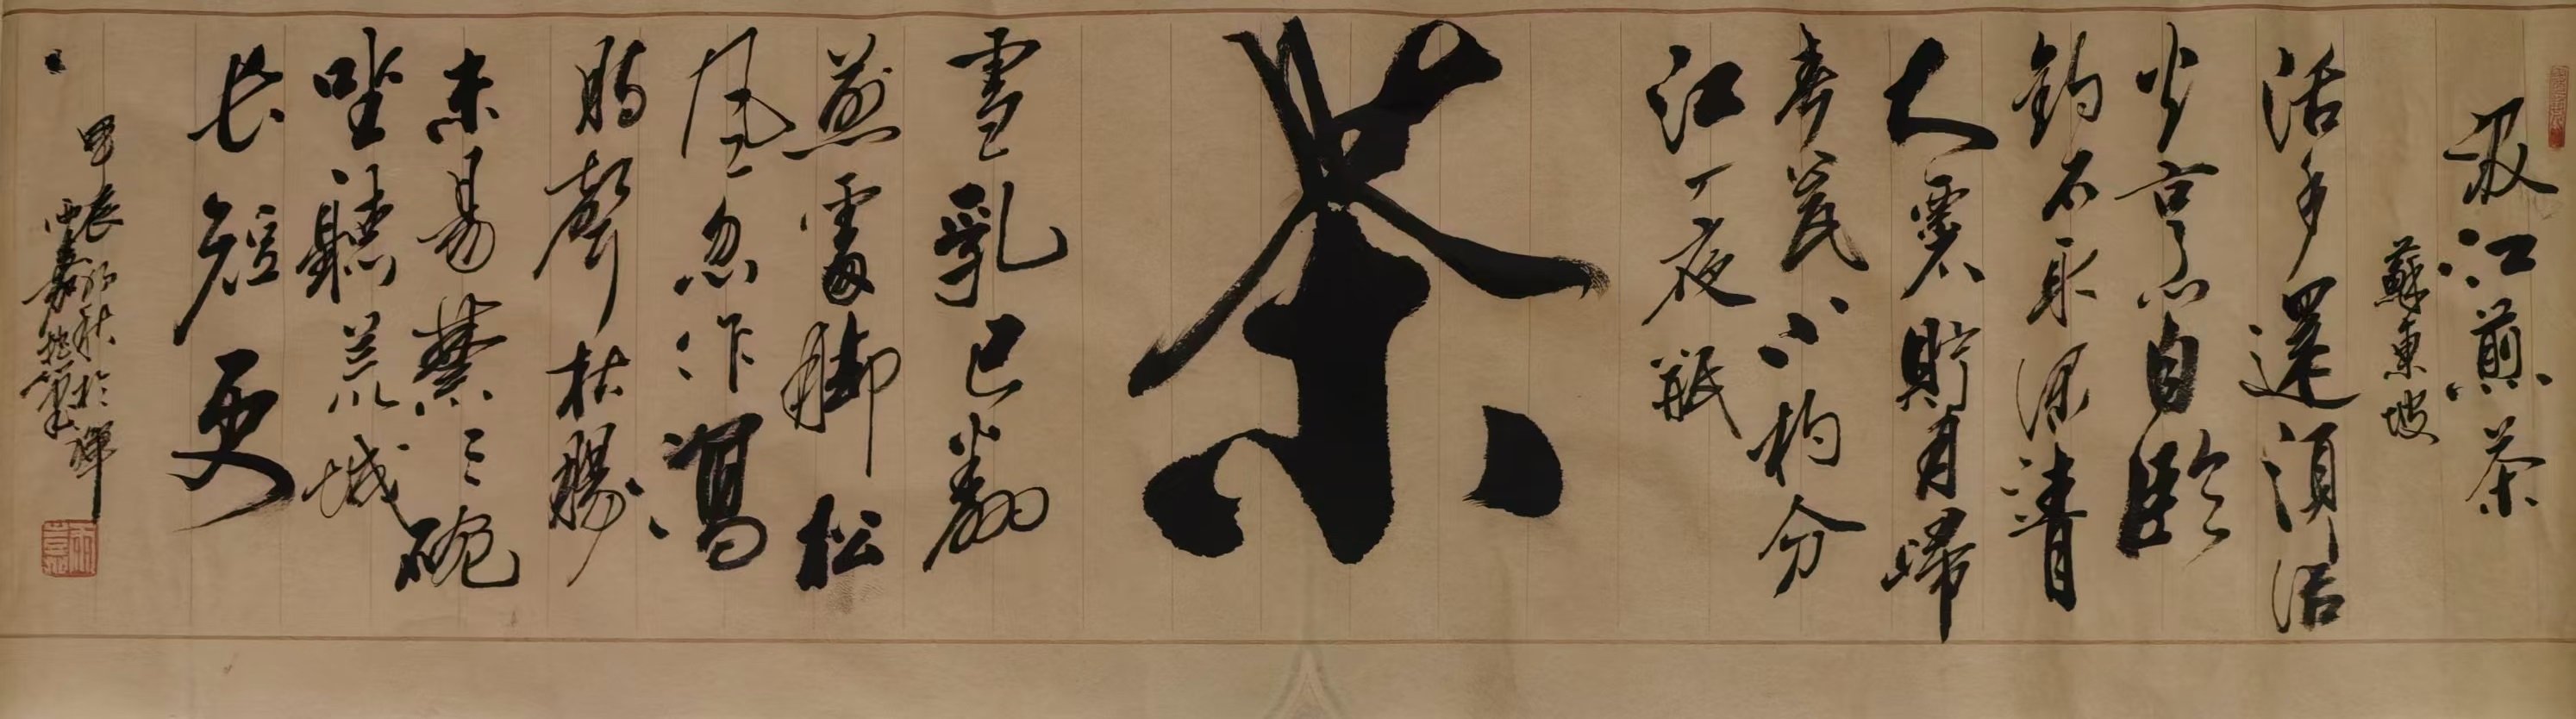 汲江煎茶
蘇東坡
活水還須活
火烹自臨
釣石取深清
大瓢貯月歸
春甕小杓分
江入夜瓶
茶
雪乳已翻
煎處脚松
風忽作瀉
時聲枯腸
未易禁三碗
坐聽荒城
長短更
甲辰初秋於禪
嘉執筆